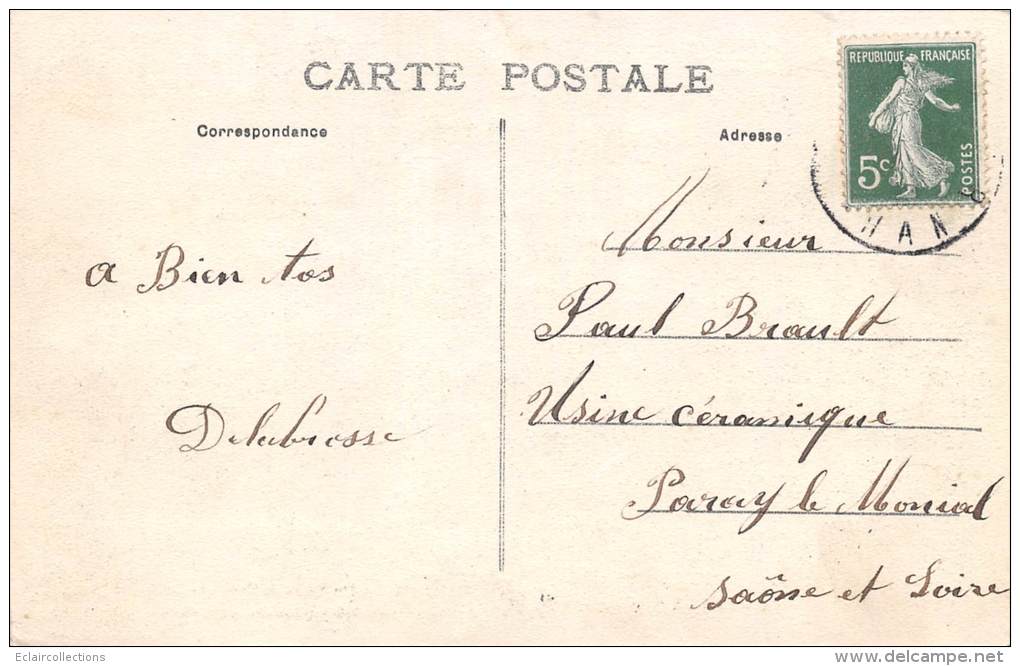 CARTE POSTALE
Correspondance
Adresse
REPUBLIQUE FRANÇAISE
5c
POSTES
a Bien tos
Delabrosse
Monsieur
Paul Brault
Usine céramique
Paray le Monial
Saône et Loire
Eclaircollections
www.delcampe.net